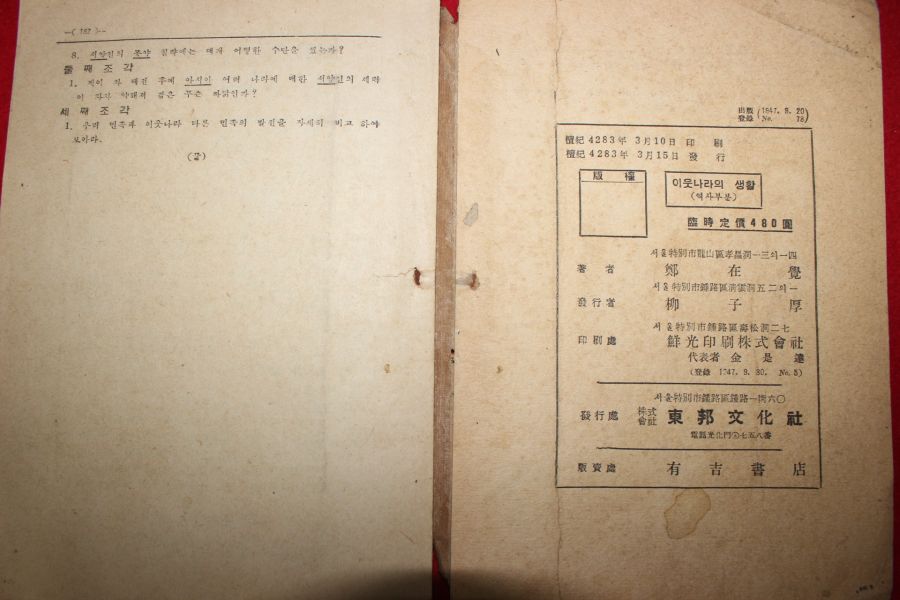 —( 182 )—
8. 서양인의 동양 침략에는 대개 어떠한 수단을 썼는가?
둘 째 조 각
1. 제이 차 대전 후에 아세아 여러 나라에 대한 서양인의 세력
이 차차 약해져 감은 무슨 까닭인가?
세 째 조 각
1. 우리 민족과 이웃나라 다른 민족의 발전을 자세히 비교 하여
보아라.
(끝)
出版 (1947. 8. 20
登錄 No. 78)
檀紀 4283年 3月10日 印 刷
檀紀 4283年 3月15日 發 行
版 權
이웃나라의 생활
(역사부분)
臨時定價480圓
서울特別市龍山區孝昌洞一三의一四
著 者 鄭 在 覺
서울特別市鍾路區淸雲洞五二의一
發行者 柳 子 厚
서울特別市鍾路區壽松洞二七
印刷處 鮮光印刷株式會社
代表者 金 是 達
(登錄 1947. 8. 30. No. 5)
서울特別市鍾路區鍾路一街六〇
發行處 株式會社 東邦文化社
電話光化門③七五八番
販賣處 有吉書店